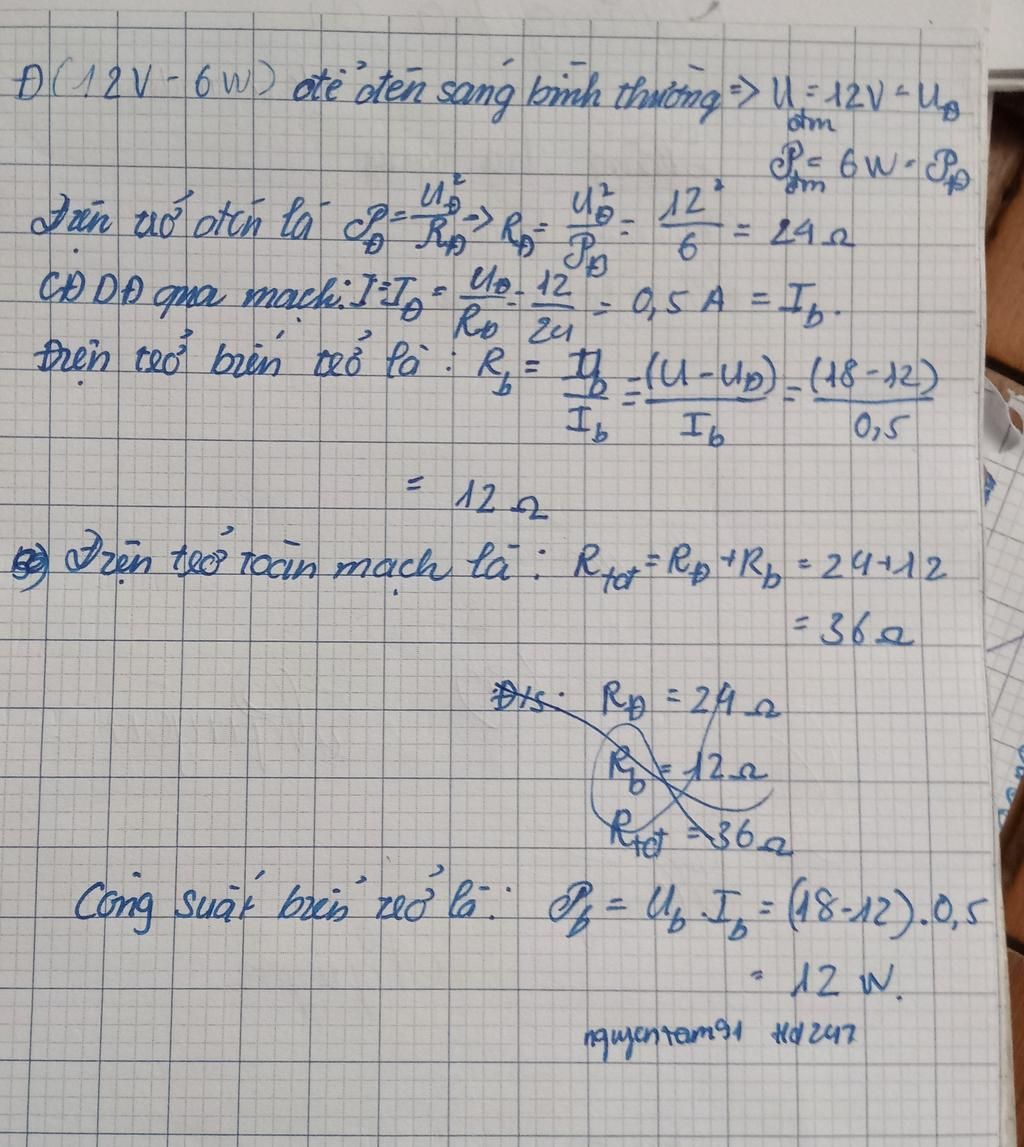 Đ(12V - 6W) để đèn sáng bình thường => U đm = 12V = U_Đ
P đm = 6W = P_Đ
Điện trở đèn là P_Đ = U_Đ²/R_Đ -> R_Đ = U_Đ²/P_Đ = 12²/6 = 24 Ω
CĐDĐ qua mạch: I = I_Đ = U_Đ/R_Đ = 12/24 = 0,5 A = I_b.
Điện trở biến trở là : R_b = U_b/I_b = (U - U_Đ)/I_b = (18 - 12)/0,5
= 12 Ω
Điện trở toàn mạch là : R_tđ = R_Đ + R_b = 24 + 12
= 36 Ω
Đ/s: R_Đ = 24 Ω
R_b = 12 Ω
R_tđ = 36 Ω
Công suất biến trở là: P_b = U_b . I_b = (18 - 12) . 0,5
= 12 W.
nguyentam91 Hd247